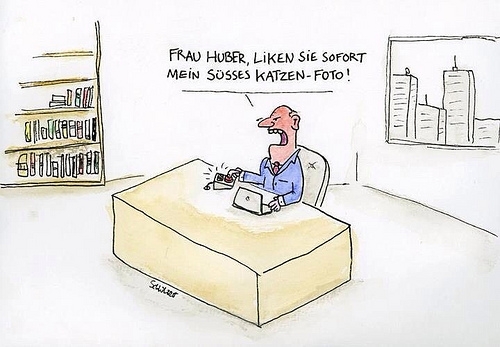 FRAU HUBER, LIKEN SIE SOFORT
MEIN SÜSSES KATZEN-FOTO!